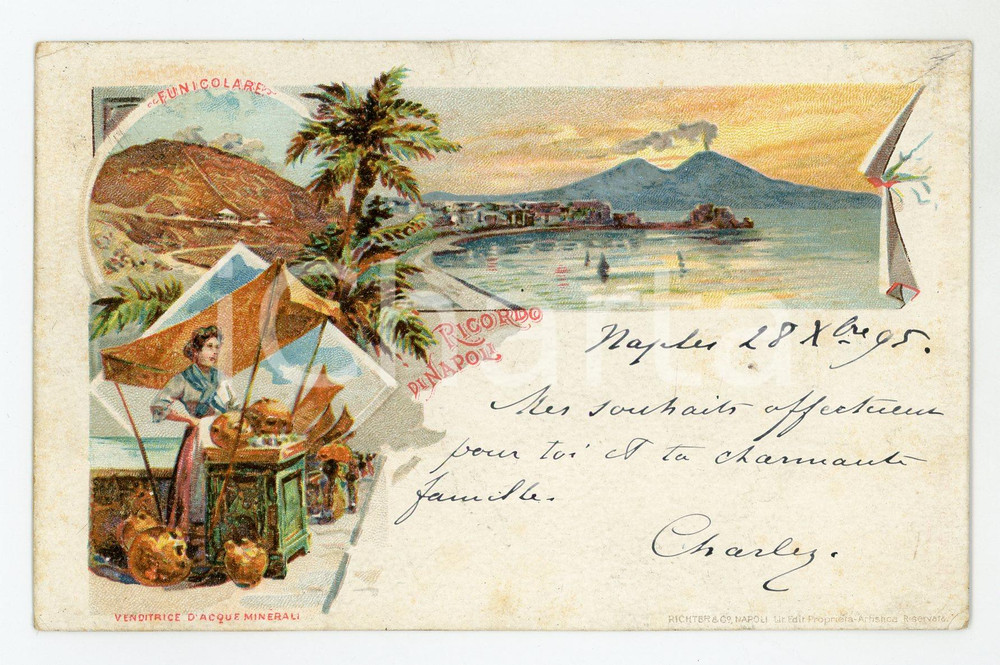 "FUNICOLARE"
RICORDO
DI NAPOLI
Naples 28 Xbre 95.
Mes souhaits affectueux
pour toi et ta charmante
famille.
Charley.
VENDITRICE D'ACQUE MINERALI
RICHTER & Co, NAPOLI Lit. Edit. Proprietà-Artistica Riservata.
iCharta